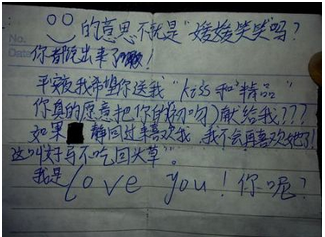 的意思不就是“媛媛笑笑”吗?
No.
你都说出来了嘛!
Date
平安夜我希望你送我“kiss和“精品”
你真的愿意把你的(初吻)献给我???
如果 静回过来喜欢我,我不会再喜欢她了!
这叫好马不吃回头草”。
我是Love you!你呢?